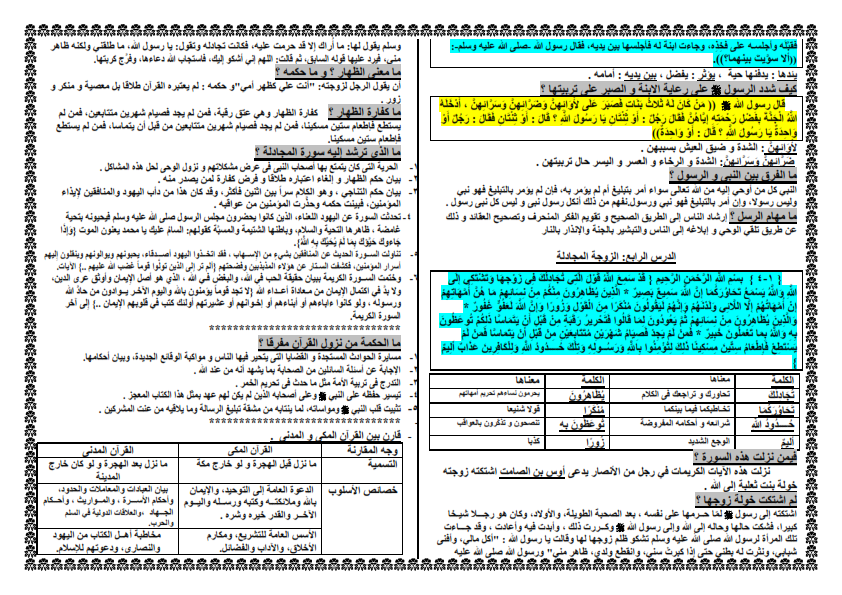 فقبّله وأجلسه على فخذه، وجاءت ابنة له فأجلسها بين يديه، فقال رسول الله -صلى الله عليه وسلم-:
((ألا سوّيت بينهما؟)).
يئدها : يدفنها حية ، يؤثر : يفضل ، بين يديه : أمامه .
كيف شدد الرسول ﷺ على رعاية الابنة و الصبر على تربيتها ؟
قال رسول الله ﷺ (( مَنْ كَانَ لَهُ ثَلَاثُ بَنَاتٍ فَصَبَرَ عَلَى لَأْوَائِهِنَّ وَضَرَّائِهِنَّ وَسَرَّائِهِنَّ ، أَدْخَلَهُ
اللهُ الْجَنَّةَ بِفَضْلِ رَحْمَتِهِ إِيَّاهُنَّ فَقَالَ رَجُلٌ : أَوْ ثِنْتَانِ يَا رَسُولَ اللهِ ؟ قَالَ : أَوْ ثِنْتَانِ فَقَالَ : رَجُلٌ أَوْ
وَاحِدَةٌ يَا رَسُولَ اللهِ ؟ قَالَ : أَوْ وَاحِدَةٌ))
لأوائهنّ : الشدة و ضيق العيش بسببهن .
ضَرَّائِهِنَّ وَسَرَّائِهِنَّ : الشدة و الرخاء و العسر و اليسر حال تربيتهن .
ما الفرق بين النبي و الرسول ؟
النبي كل من أوحي إليه من الله تعالى سواء أمر بتبليغ أم لم يؤمر به، فإن لم يؤمر بالتبليغ فهو نبي
وليس رسولا، وإن أمر بالتبليغ فهو نبي ورسول.نفهم من ذلك أنكل رسول نبي و ليس كل نبي رسول .
ما مهام الرسل ؟ إرشاد الناس إلى الطريق الصحيح و تقويم الفكر المنحرف وتصحيح العقائد و ذلك
عن طريق تلقي الوحي و إبلاغه إلى الناس والتبشير بالجنة والإنذار بالنار
الدرس الرابع: الزوجة المجادلة
{ ١- ٤ } بِسمِ اللهِ الرَّحمنِ الرَّحيمِ { قَدْ سَمِعَ اللهُ قَوْلَ الَّتِي تُجَادِلُكَ فِي زَوْجِهَا وَتَشْتَكِي إِلَى
اللهِ وَاللهُ يَسْمَعُ تَحَاوُرَكُمَا إِنَّ اللهَ سَمِيعٌ بَصِيرٌ * الَّذِينَ يُظَاهِرُونَ مِنْكُمْ مِنْ نِسَائِهِمْ مَا هُنَّ أُمَّهَاتِهِمْ
إِنْ أُمَّهَاتُهُمْ إِلَّا اللَّائِي وَلَدْنَهُمْ وَإِنَّهُمْ لَيَقُولُونَ مُنْكَرًا مِنَ الْقَوْلِ وَزُورًا وَإِنَّ اللهَ لَعَفُوٌّ غَفُورٌ *
وَالَّذِينَ يُظَاهِرُونَ مِنْ نِسَائِهِمْ ثُمَّ يَعُودُونَ لِمَا قَالُوا فَتَحْرِيرُ رَقَبَةٍ مِنْ قَبْلِ أَنْ يَتَمَاسَّا ذَلِكُمْ تُوعَظُونَ
بِهِ وَاللهُ بِمَا تَعْمَلُونَ خَبِيرٌ * فَمَنْ لَمْ يَجِدْ فَصِيَامُ شَهْرَيْنِ مُتَتَابِعَيْنِ مِنْ قَبْلِ أَنْ يَتَمَاسَّا فَمَنْ لَمْ
يَسْتَطِعْ فَإِطْعَامُ سِتِّينَ مِسْكِينًا ذَلِكَ لِتُؤْمِنُوا بِاللهِ وَرَسُولِهِ وَتِلْكَ حُدُودُ اللهِ وَلِلْكَافِرِينَ عَذَابٌ أَلِيمٌ
}
الكلمة معناها الكلمة معناها
تُجَادِلُكَ تحاورك و تراجعك في الكلام يُظَاهِرُونَ يحرمون نساءهم تحريم أمهاتهم
تَحَاوُرَكُمَا تخاطبكما فيما بينكما مُنْكَرًا قولا شنيعا
حُدُودُ اللهِ شرائعه و أحكامه المفروضة تُوعَظُونَ بِهِ تنصحون و تذكرون بالعواقب
أَلِيمٌ الوجع الشديد زُورًا كذبا
فيمن نزلت هذه السورة ؟
نزلت هذه الآيات الكريمات في رجل من الأنصار يدعى أوس بن الصامت اشتكته زوجته
خولة بنت ثعلبة إلى الله .
لم اشتكت خولة زوجها ؟
اشتكته إلى رسول ﷺ لمّا حرمها على نفسه ، بعد الصحبة الطويلة، والأولاد، وكان هو رجلا شيخا
كبيرا، فشكت حالها وحاله إلى الله وإلى رسول الله ﷺ وكررت ذلك ، وأبدت فيه وأعادت ، وقد جاءت
تلك المرأة لرسول الله صلى الله عليه وسلم تشكو ظلم زوجها لها وقالت يا رسول الله : "أكل مالي، وأفنى
شبابي، ونثرت له بطني حتى إذا كبرت سني، وانقطع ولدي، ظاهر مني" ورسول الله صلى الله عليه
وسلم يقول لها: ما أراك إلا قد حرمت عليه، فكانت تجادله وتقول: يا رسول الله، ما طلقني ولكنه ظاهر
مني، فيرد عليها قوله السابق، ثم قالت: اللهم إني أشكو إليك، فاستجاب الله دعاءها، وفرّج كربتها.
ما معنى الظهار ؟ و ما حكمه ؟
أن يقول الرجل لزوجته: "أنت علي كظهر أمي"و حكمه : لم يعتبره القرآن طلاقا بل معصية و منكر و
زور .
ما كفارة الظهار ؟ كفارة الظهار وهي عتق رقبة، فمن لم يجد فصيام شهرين متتابعين، فمن لم
يستطع فإطعام ستين مسكينا، فمن لم يجد فصيام شهرين متتابعين من قبل أن يتماسا، فمن لم يستطع
فإطعام ستين مسكينا.
ما الذي ترشد إليه سورة المجادلة ؟
١- الحرية التي كان يتمتع بها أصحاب النبي في عرض مشكلاتهم و نزول الوحي لحل هذه المشاكل .
٢- بيان حكم الظهار و إلغاء اعتباره طلاقا و فرض كفارة لمن يصدر منه .
٣- بيان حكم التناجي ، وهو الكلام سراً بين اثنين فأكثر، وقد كان هذا من دأب اليهود والمنافقين لإيذاء
المؤمنين، فبينت حكمه وحذّرت المؤمنين من عواقبه .
٤- تحدثت السورة عن اليهود اللعناء، الذين كانوا يحضرون مجلس الرسول صلى الله عليه وسلم فيحيونه بتحية
غامضة ، ظاهرها التحية والسلام، وباطنها الشتيمة والمسبّة كقولهم: السام عليك يا محمد يعنون الموت {وإذا
جاءوك حَيَّوْك بما لم يُحَيِّك به الله}.
٥- تناولت السورة الحديث عن المنافقين بشيء من الإسهاب ، فقد اتخذوا اليهود أصدقاء، يحبونهم ويوالونهم وينقلون إليهم
أسرار المؤمنين، فكشفت الستار عن هؤلاء المذبذبين وفضحتهم {ألم تر إلى الذين تولّوا قوماً غضب الله عليهم ..} الآيات.
٦- وختمت السورة الكريمة ببيان حقيقة الحب في الله، والبغض في الله ، الذي هو أصل الإيمان وأوثق عرى الدين،
ولا بدّ في اكتمال الإيمان من معاداة أعداء الله {لا تجد قوماً يؤمنون بالله واليوم الآخر يوادون من حادّ الله
ورسوله ، ولو كانوا ءاباءهم أو أبناءهم أو إخوانهم أو عشيرتهم أولئك كتب في قلوبهم الإيمان ..} إلى آخر
السورة الكريمة.
********************************
ما الحكمة من نزول القرآن مفرقا ؟
١- مسايرة الحوادث المستجدة و القضايا التي يتحير فيها الناس و مواكبة الوقائع الجديدة، وبيان أحكامها.
٢- الإجابة عن أسئلة السائلين من الصحابة بما يشهد أنه من عند الله .
٣- التدرج في تربية الأمة مثل ما حدث في تحريم الخمر .
٤- تيسير حفظه على النبي ﷺ وعلى أصحابه الذين لم يكن لهم عهد بمثل هذا الكتاب المعجز .
٥- تثبيت قلب النبي ﷺ ومواساته، لما ينتابه من مشقة تبليغ الرسالة وما يلاقيه من عنت المشركين .
********************************
- قارن بين القرآن المكي و المدني .
وجه المقارنة القرآن المكي القرآن المدني
التسمية ما نزل قبل الهجرة و لو كان خارج مكة ما نزل بعد الهجرة و لو كان خارج
المدينة
خصائص الأسلوب الدعوة العامة إلى التوحيد، والإيمان بيان العبادات والمعاملات والحدود،
بالله وملائكته وكتبه ورسله واليوم وأحكام الأسرة ، والمواريث ، وأحكام
الآخر والقدر خيره وشره . الجهاد ،والعلاقات الدولية في السلم
والحرب.
الأسس العامة للتشريع، ومكارم مخاطبة أهل الكتاب من اليهود
الأخلاق، والآداب والفضائل. والنصارى، ودعوتهم للإسلام.